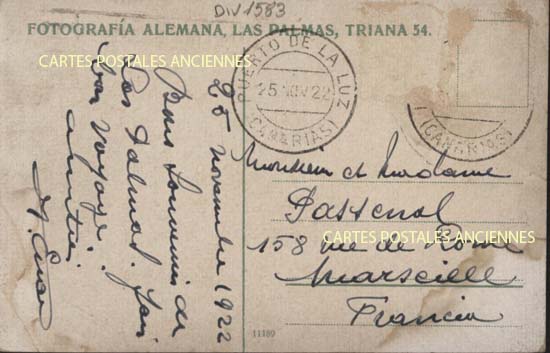 DIV 1583
FOTOGRAFÍA ALEMANA, LAS PALMAS, TRIANA 54.
CARTES POSTALES ANCIENNES
PUERTO DE LA LUZ
25 NOV 22
(CANARIAS)
(CANARIAS)
25 novembre 1922
Bons Souvenirs de
Las Palmas. Fais
bon voyage.
amitiés
Monsieur et Madame
Pastenol
CARTES POSTALES ANCIENNES
158 rue de Rome
Marseille
Francia
11189